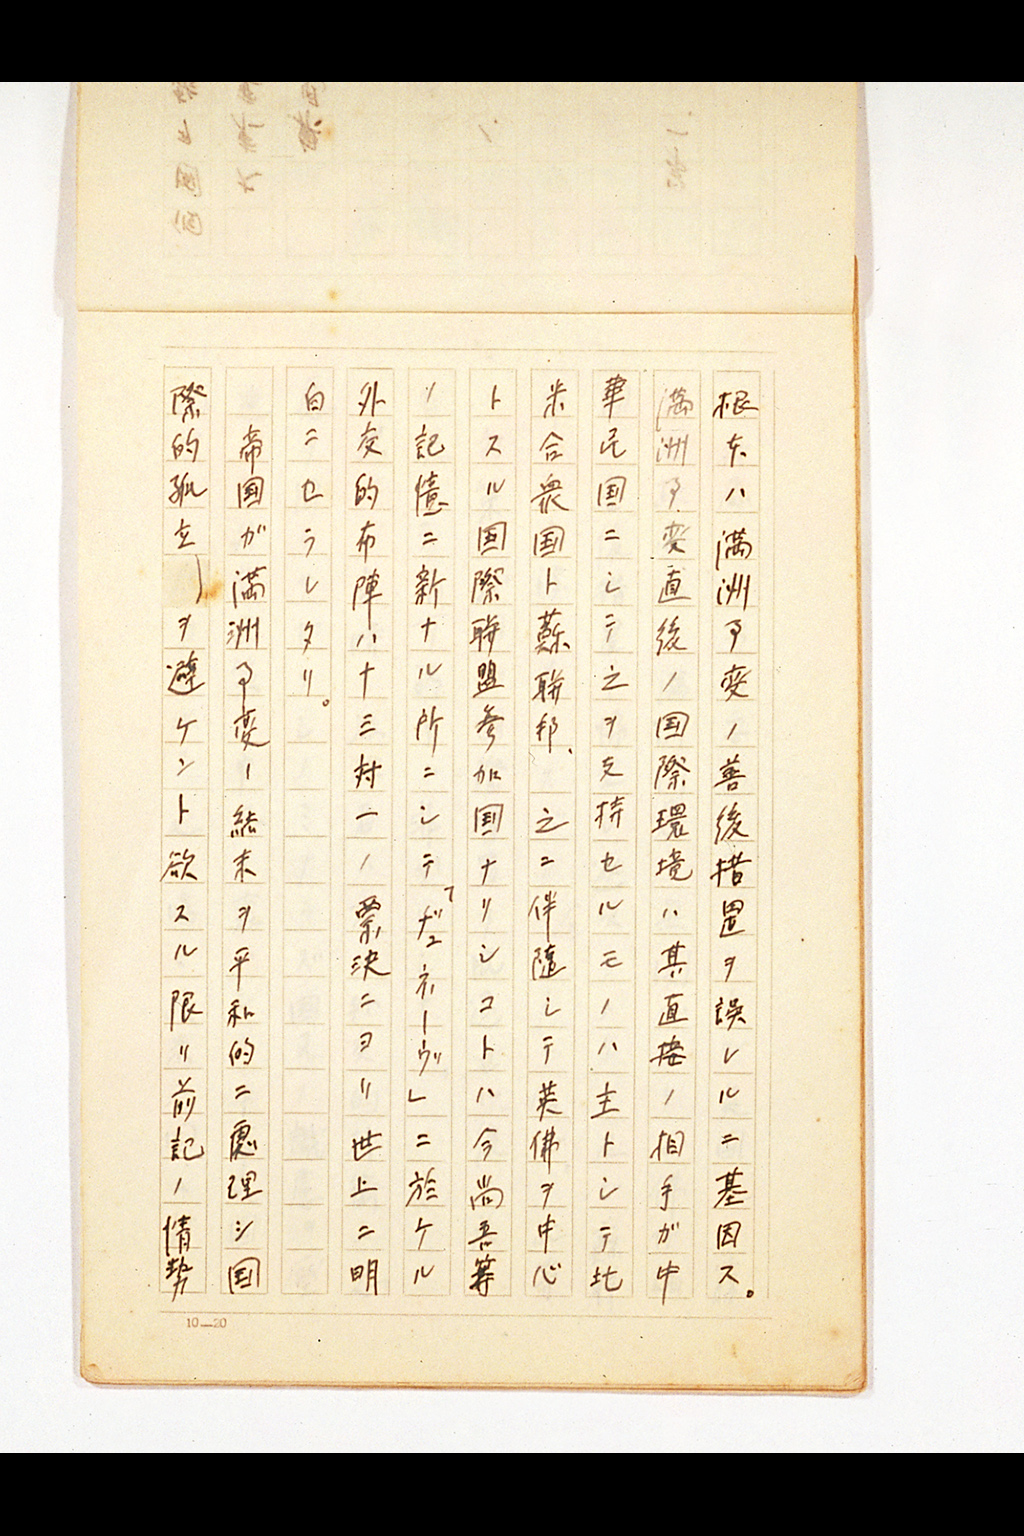 根本ハ満洲事変ノ善後措置ヲ誤レルニ基因ス。
満洲事変直後ノ国際環境ハ其直接ノ相手ガ中
華民国ニシテ之ヲ支持セルモノハ主トシテ北
米合衆国ト蘇聯邦、之ニ伴隨シテ英佛ヲ中心
トスル国際聯盟参加国ナリシコトハ今尚吾等
ノ記憶ニ新ナル所ニシテ「ヂュネーヴ」ニ於ケル
外交的布陣ハ十三対一ノ票決ニヨリ世上ニ明
白ニセラレタリ。
帝国ガ満洲事変ノ結末ヲ平和的ニ處理シ国
際的孤立ヲ避ケント欲スル限リ前記ノ情勢
10—20